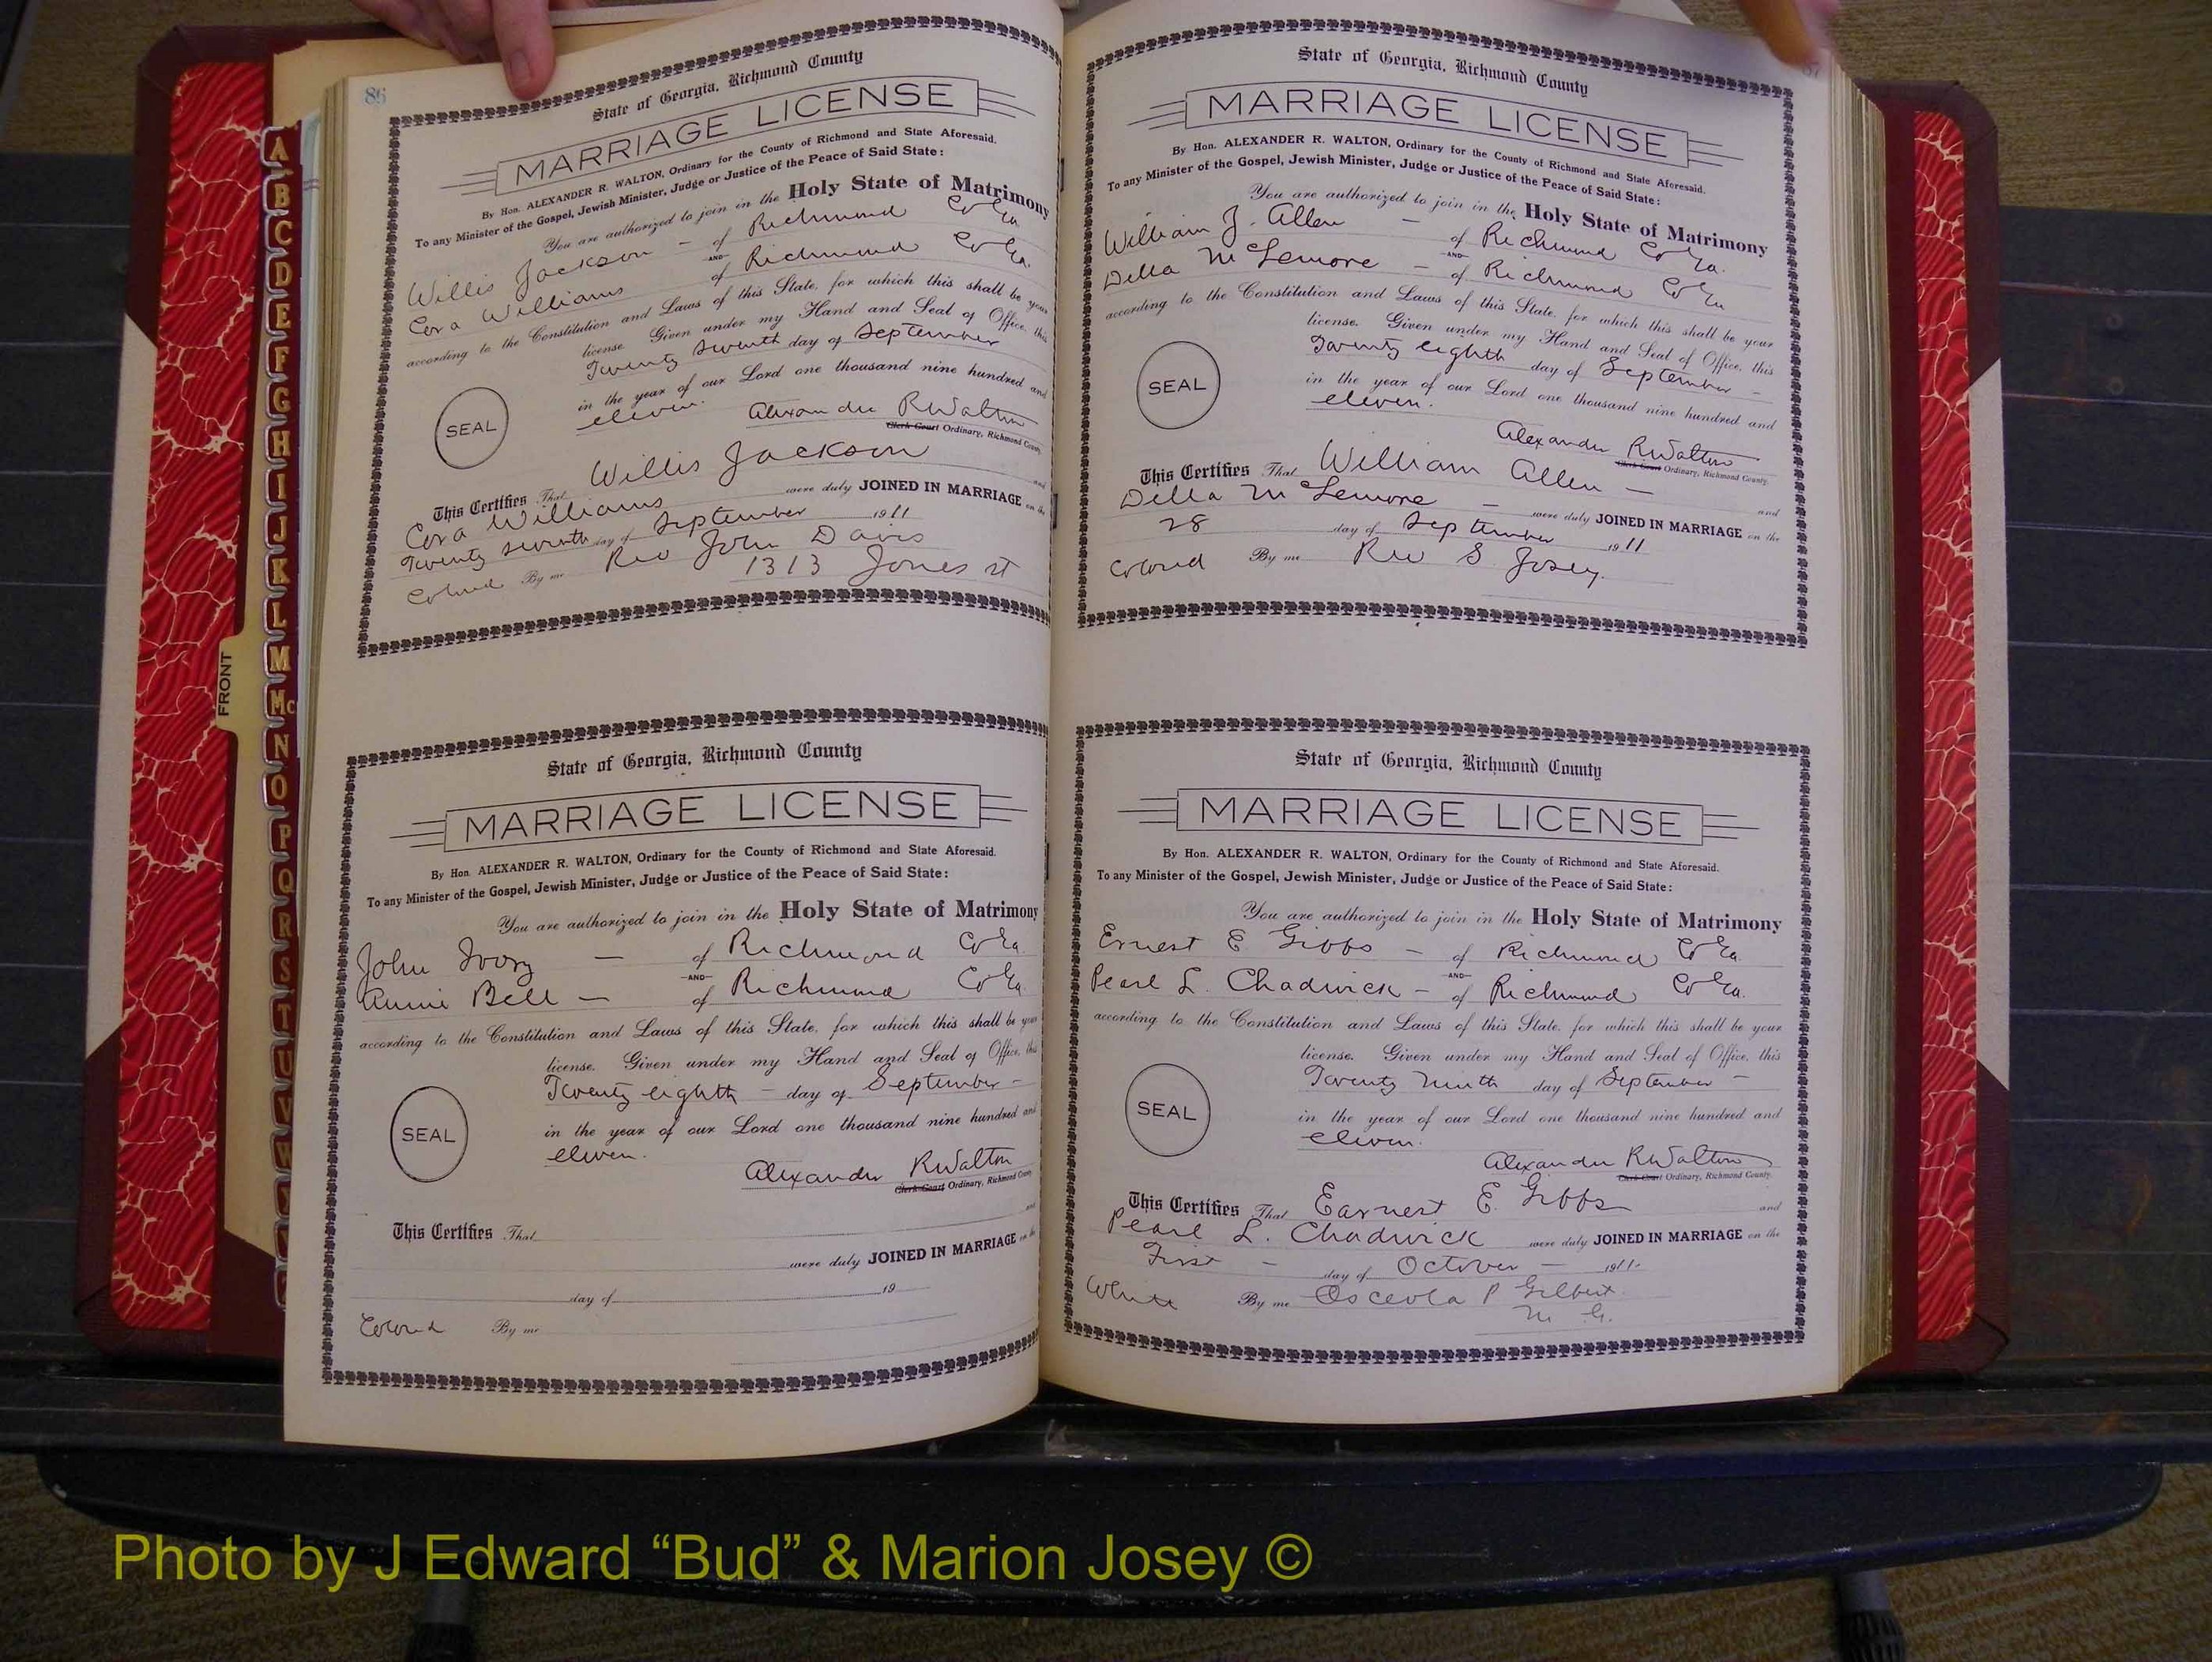 86
State of Georgia, Richmond County
MARRIAGE LICENSE
By Hon. ALEXANDER R. WALTON, Ordinary for the County of Richmond and State Aforesaid.
To any Minister of the Gospel, Jewish Minister, Judge or Justice of the Peace of Said State:
You are authorized to join in the Holy State of Matrimony
Willis Jackson — of Richmond Co Ga.
AND
Cora Williams of Richmond Co Ga.
according to the Constitution and Laws of this State, for which this shall be your
license. Given under my Hand and Seal of Office, this
Twenty seventh day of September
in the year of our Lord one thousand nine hundred and
eleven.
SEAL
Alexander R Walton
Clerk Court Ordinary, Richmond County.
This Certifies That Willis Jackson and
Cora Williams were duly JOINED IN MARRIAGE on the
Twenty seventh day of September 1911
Colored By me Rev John Davis
1313 Jones st
State of Georgia, Richmond County
MARRIAGE LICENSE
By Hon. ALEXANDER R. WALTON, Ordinary for the County of Richmond and State Aforesaid.
To any Minister of the Gospel, Jewish Minister, Judge or Justice of the Peace of Said State:
You are authorized to join in the Holy State of Matrimony
John Ivory — of Richmond Co Ga.
AND
Annie Bell — of Richmond Co Ga.
according to the Constitution and Laws of this State, for which this shall be your
license. Given under my Hand and Seal of Office, this
Twenty eighth — day of September —
in the year of our Lord one thousand nine hundred and
eleven.
SEAL
Alexander R Walton
Clerk Court Ordinary, Richmond County
This Certifies That and
were duly JOINED IN MARRIAGE on the
day of 19
Colored By me
87
State of Georgia, Richmond County
MARRIAGE LICENSE
By Hon. ALEXANDER R. WALTON, Ordinary for the County of Richmond and State Aforesaid.
To any Minister of the Gospel, Jewish Minister, Judge or Justice of the Peace of Said State:
You are authorized to join in the Holy State of Matrimony
William J. Allen — of Richmond Co Ga.
AND
Della McLemore — of Richmond Co Ga
according to the Constitution and Laws of this State, for which this shall be your
license. Given under my Hand and Seal of Office, this
Twenty eighth day of September —
in the year of our Lord one thousand nine hundred and
eleven.
SEAL
Alexander R Walton
Clerk Court Ordinary, Richmond County.
This Certifies That William Allen — and
Della McLemore — were duly JOINED IN MARRIAGE on the
28 day of September 1911
Colored By me Rev S. Josey.
State of Georgia, Richmond County
MARRIAGE LICENSE
By Hon. ALEXANDER R. WALTON, Ordinary for the County of Richmond and State Aforesaid.
To any Minister of the Gospel, Jewish Minister, Judge or Justice of the Peace of Said State:
You are authorized to join in the Holy State of Matrimony
Ernest E. Gibbs — of Richmond Co Ga.
AND
Pearl L. Chadwick — of Richmond Co Ga.
according to the Constitution and Laws of this State, for which this shall be your
license. Given under my Hand and Seal of Office, this
Twenty Ninth day of September —
in the year of our Lord one thousand nine hundred and
eleven.
SEAL
Alexander R Walton
Clerk Court Ordinary, Richmond County.
This Certifies That Earnest E. Gibbs and
Pearl L. Chadwick were duly JOINED IN MARRIAGE on the
First — day of October — 1911.
White By me Osceola P Gilbert.
M. G.
A
B
C
D
E
F
G
H
I
J
K
L
M
Mc
N
O
P
Q
R
S
T
U
V
W
FRONT
Photo by J Edward “Bud” & Marion Josey ©